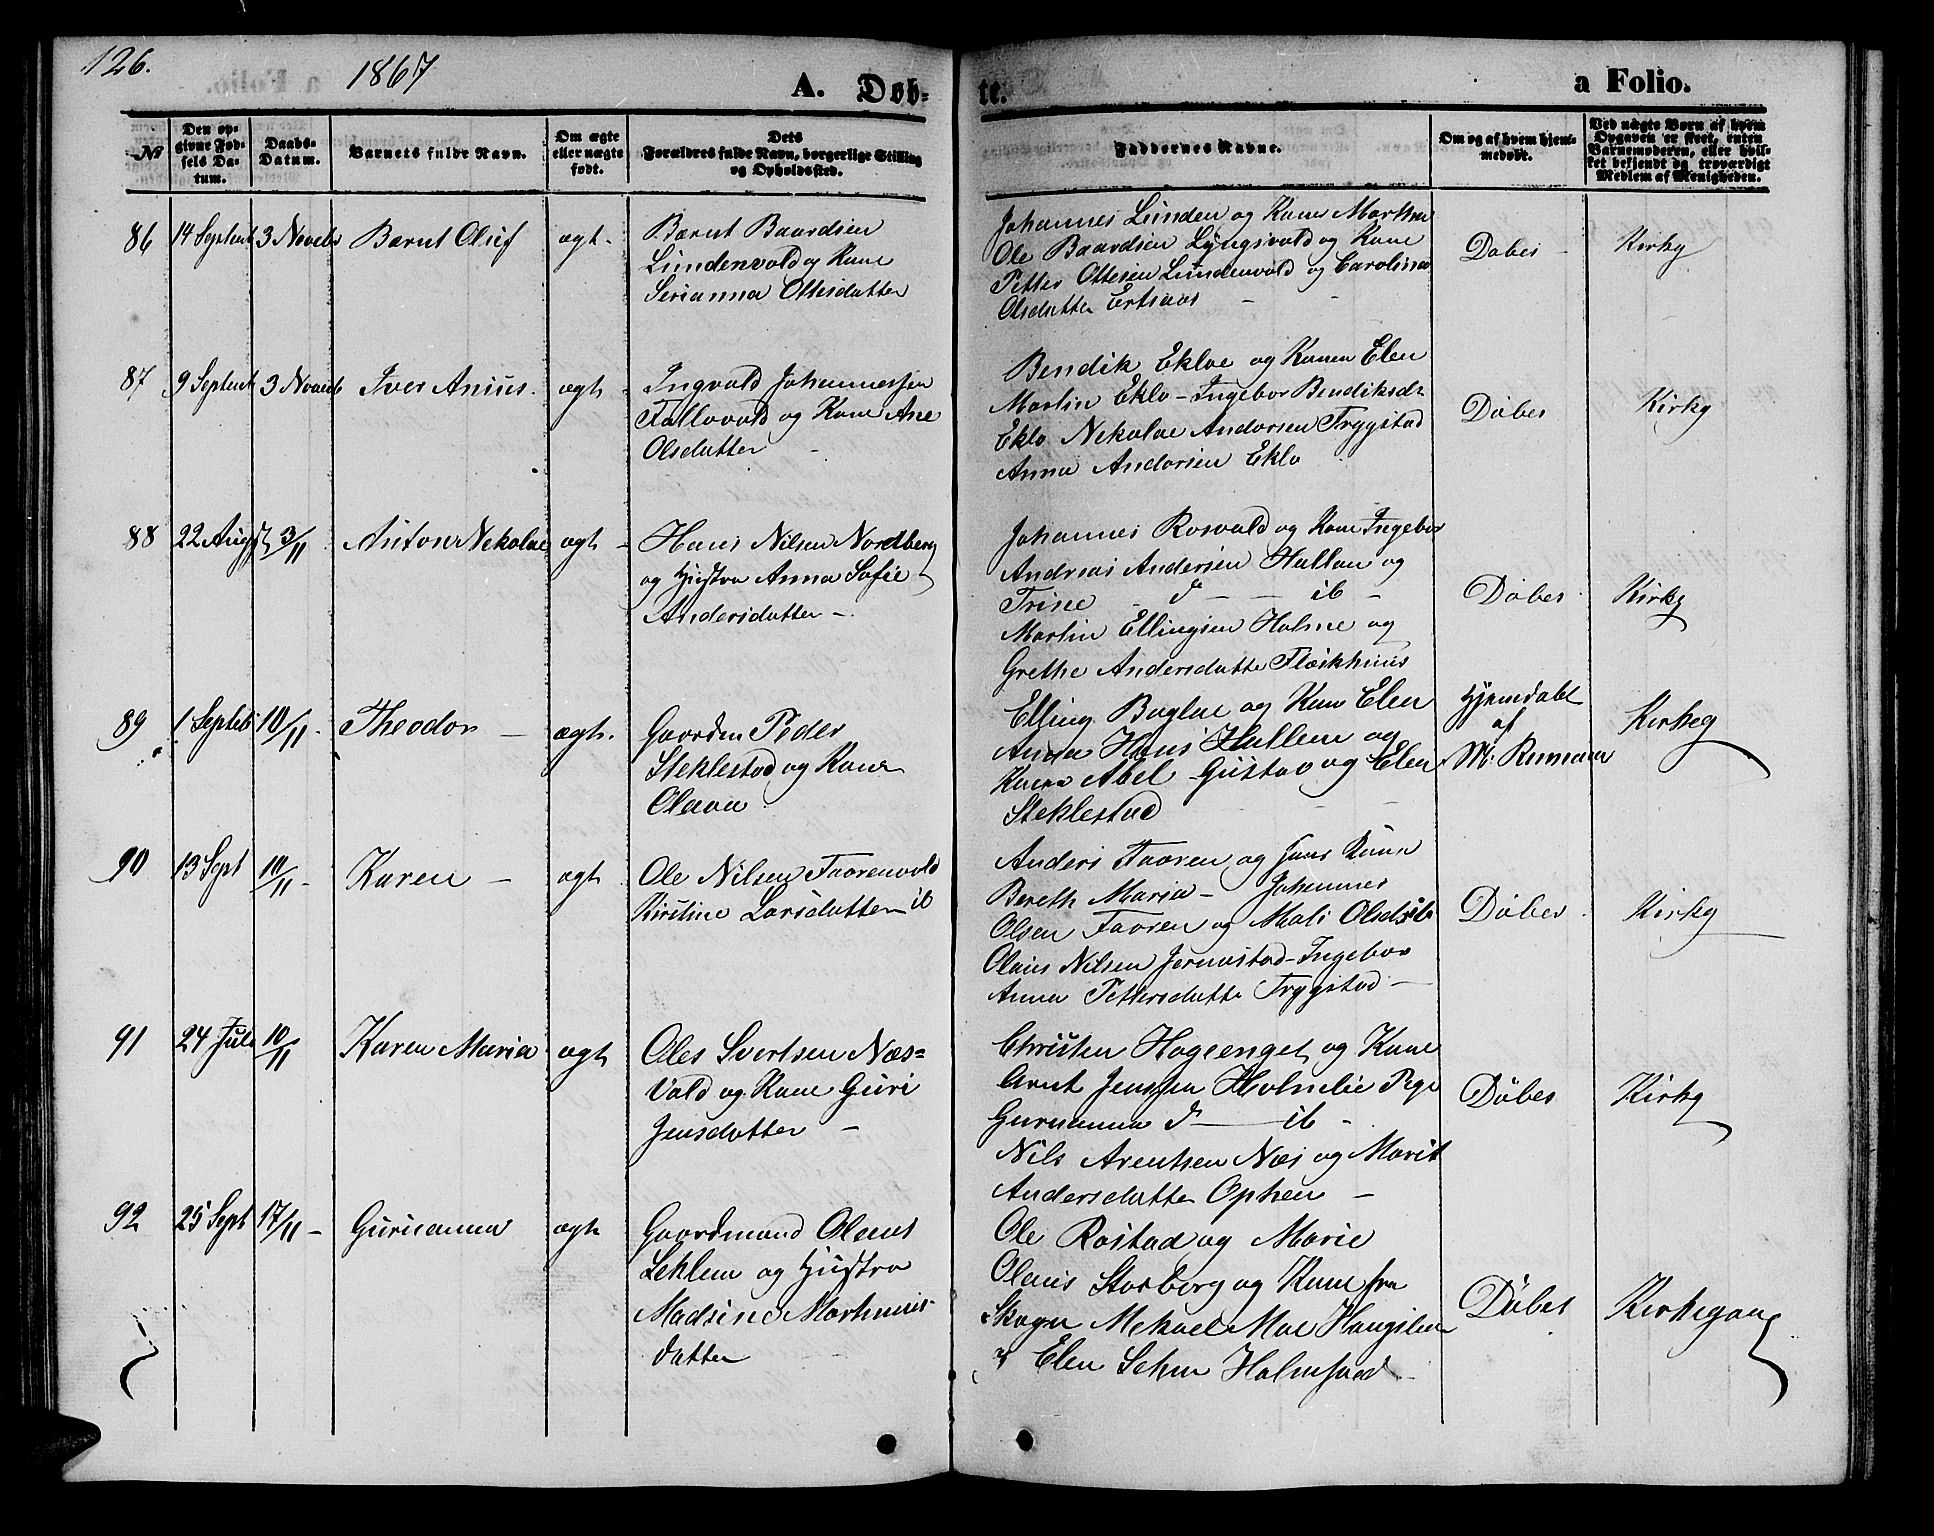 126.
1867
A. Døb-
te.
a Folio.
No
Den op-
givne Fød-
sels Da-
tum.
Daabs-
Datum.
Barnets fulde Navn.
Om ægte
eller uægte
født.
Dets
Forældres fulde Navn, borgerlige Stilling
og Opholdssted.
Faddernes Navne.
Om og af hvem hjem-
medøbt.
Ved uægte Børn af hvem
Opgaven er skeet, enten
Barnemoderen, eller hvil-
ket bekjendt og troværdigt
Medlem af Menigheden.
86 14 Septent 3 Novebr Bærnt Oluf ægt.
Bærnt Baardsen
Lundenvald og Kane
Serianna Ottesdatter
Johannes Lunden og Kane Martha
Ole Baardsen Lyngsvald og Kane
Petter Ottesen Lundenvald og Carolina
Olsdatter Ertsaas
Døbes
Kirkg
87 9 Septent 3 Novemb Iver Anius. ægt
Ingvald Johannessen
Fallovald og Kane Ane
Olsdatter
Bendik Ekloe og Kanen Elen
Martin Eklo - Ingebor Bendiksdr
Eklo Nekolae Andersen Trygstad
Anna Andersen Eklo
Døbes
Kirkg
88 22 Augst 3/11 Anton Nekolae ægt
Hans Nilsen Nordberg
og Hustro Anna Sofie
Andersdatter -
Johannes Rosvald og Kane Ingebor
Andreas Andersen Hallan og
Trine d - ib -
Martin Ellingsen Holme og
Grethe Andersdatte Fleskhuus
Døbes
Kirkg
89 1 Septeb 10/11. Theodor - ægt.
Gaardm Peder
Steklestad og Kane
Olava
Elling Baglae og Kane Elen
Anna Hans Hallem og
Kane Abel Gustav og Elen
Steklestad
Hjemdøbt
af
M: Rennaa
Kirkeg
90 13 Sept 10/11 - Karen - ægt
Ole Nilsen Faarenvald
Kirstine Larsdatter ib
Anders Faaren og hans Kane
Bereth Maria - Johannes
Olsen Faaren og Mali Olsdtr ib
Olaus Nilsen Jermstad - Ingebor
Anna Pettersdatte Trygstad -
Døbes
Kirkg
91 24 Juli 10/11 Karen Maria ægt
Oles Sivertsen Næs=
vald og Kane Guri
Jensdatter -
Christen Hageenget og Kane
Arnt Jenssen Holmlie Pige
Gurianna d - ib -
Nils Arentsen Næs og Marit
Andersdatte Ophen -
Døbes
Kirkg
92 25 Sept 17/11 - Gurieanna ægt
Gaardmand Olaus
Leklem og Hustro
Madsine Marhuus-
datter
Ole Røstad og Marie
Olaus Storberg og Kane fra
Skogn Mekael Moe Haugslien
og Elen Sehm Holmsved
Døbes
Kirkegang